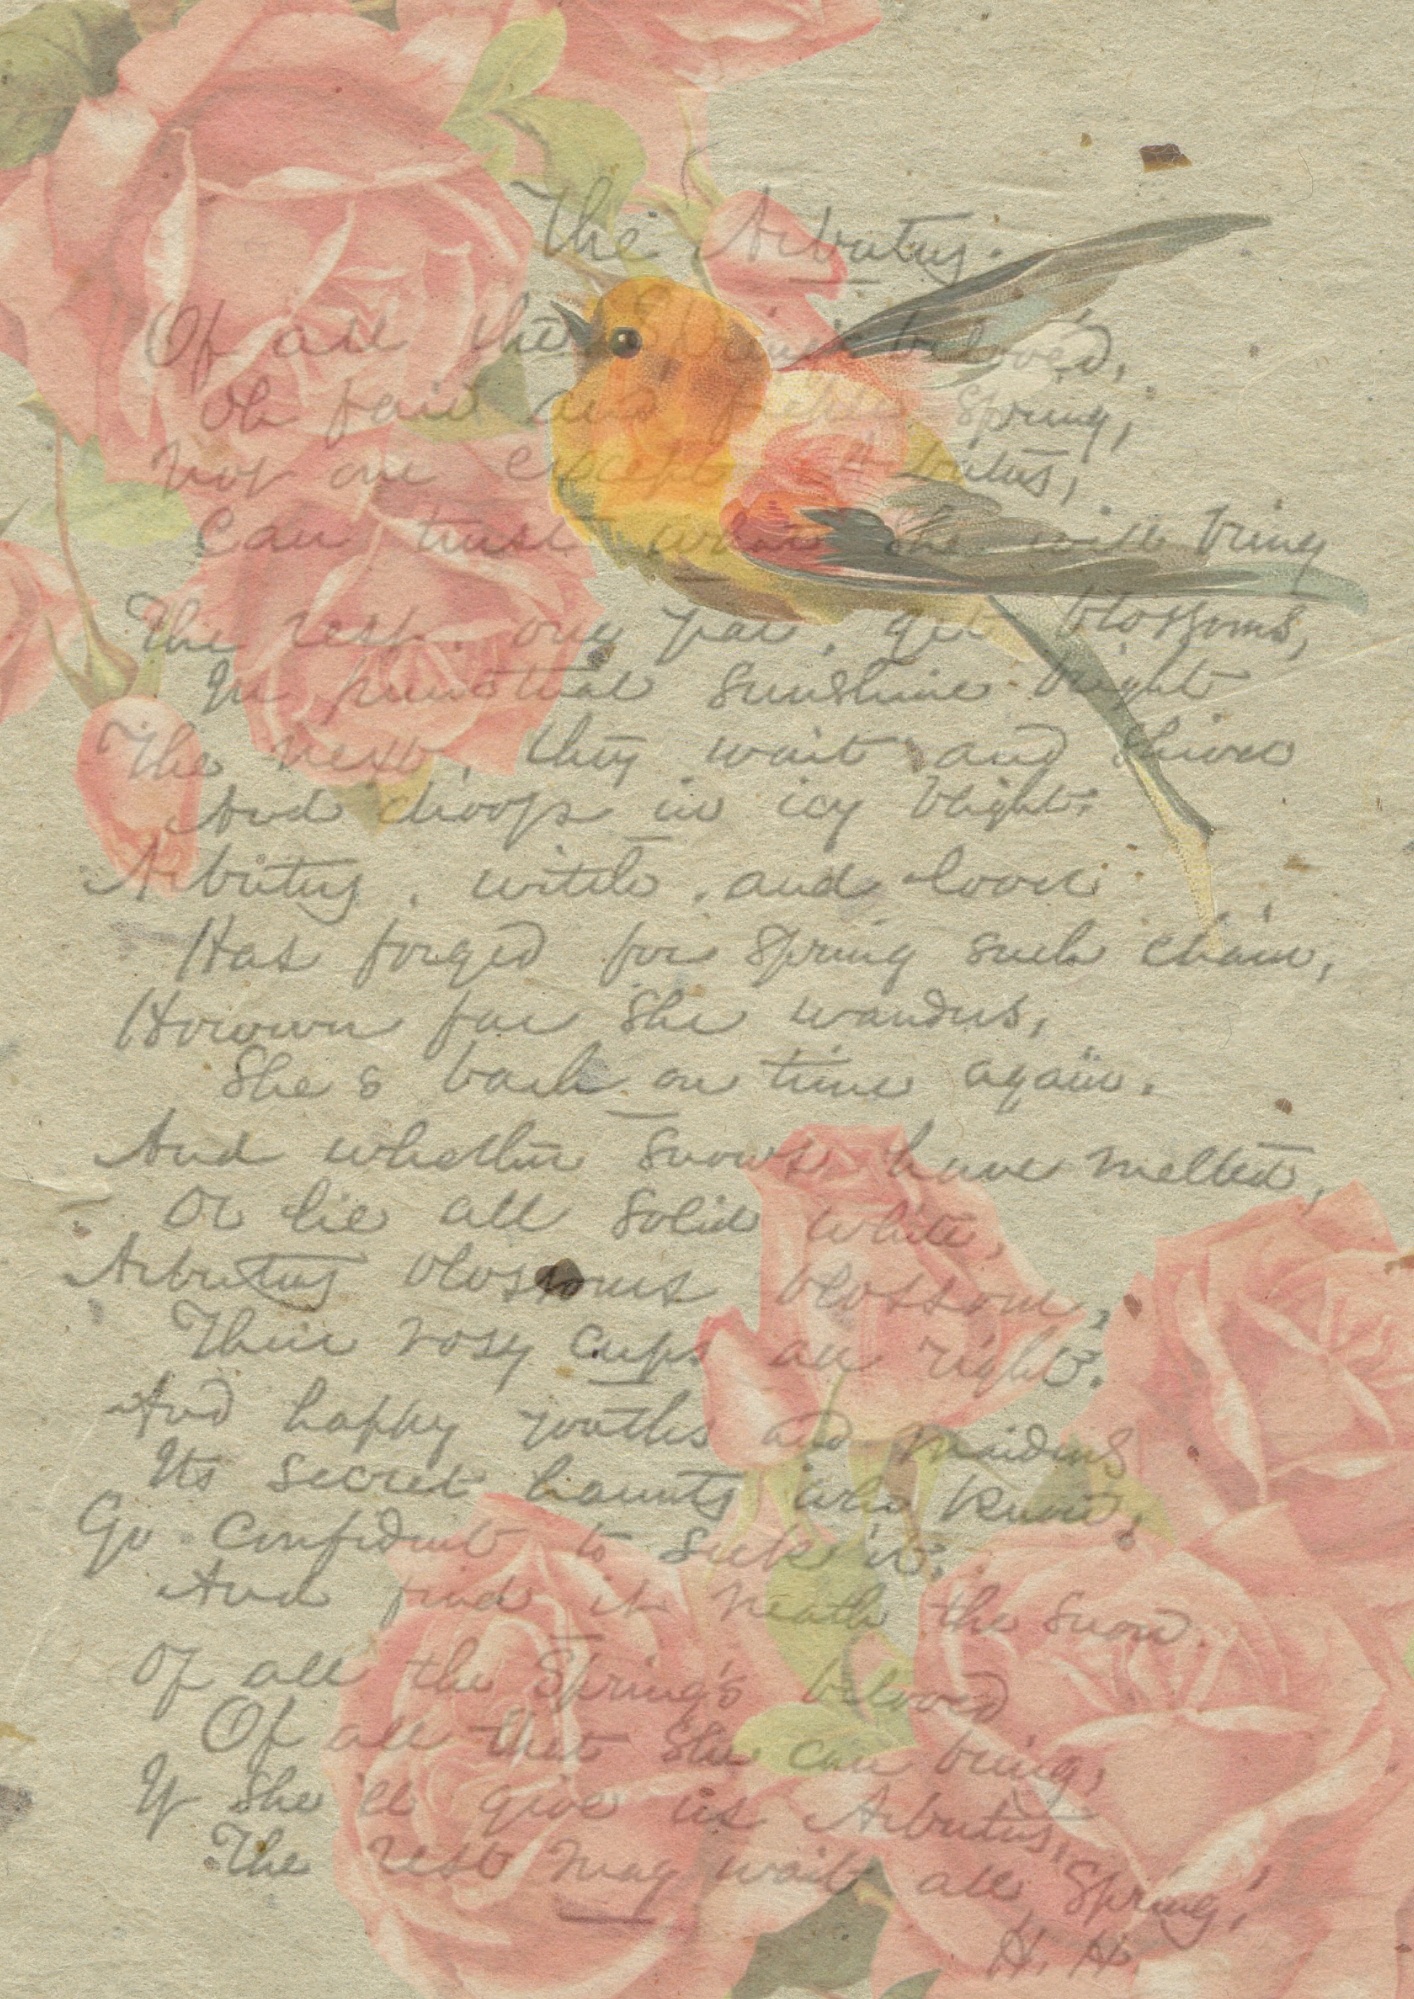 The Arbutus.
Of all the Spring's beloved,
Oh fair and fickle Spring,
Not one except Arbutus,
Can trust what she will bring
The rest, one year, get blossoms,
In primotial sunshine bright
The next, they wait and shiver
And droops in icy blight.
Arbutus, witch, and lover
Has forged for Spring such chain,
However far she wanders,
She's back on time again.
And whether snows have melted,
Or lie all solid white,
Arbutus blossoms blossom,
Their rosy cups all right.
And happy youths and maidens
Its secret haunts who know,
Go confident to seek it,
And find it neath the snow.
Of all the Spring's beloved
Of all that she can bring,
If she'll give us Arbutus,
The rest may wait all Spring!
H. H.